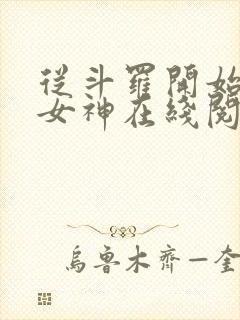 從斗羅開始
女神在綫閱
烏魯木齊一奎